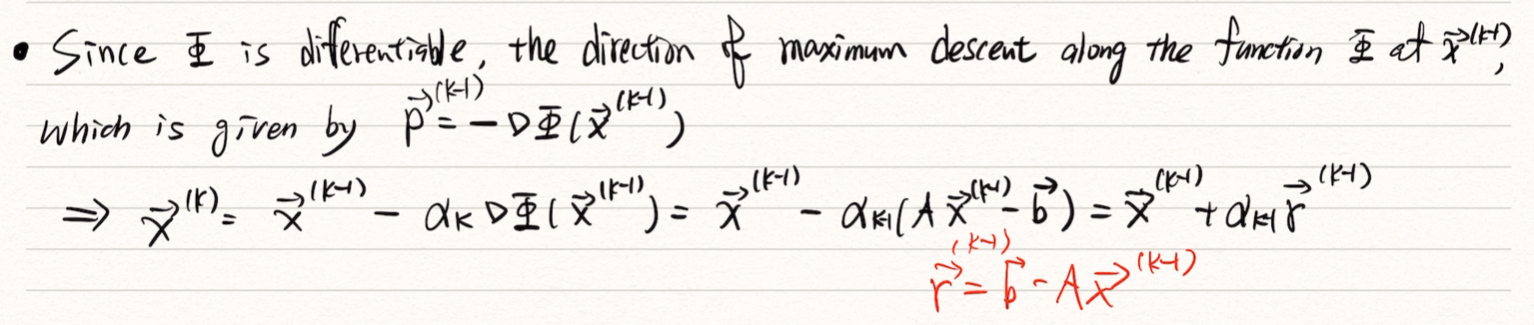 • Since Φ is differentiable, the direction of maximum descent along the function Φ at x⃗^(k-1),
which is given by p⃗^(k-1) = -∇Φ(x⃗^(k-1))
⇒ x⃗^(k) = x⃗^(k-1) - α_k ∇Φ(x⃗^(k-1)) = x⃗^(k-1) - α_k-1(A x⃗^(k-1) - b⃗) = x⃗^(k-1) + α_k-1 r⃗^(k-1)
r⃗^(k-1) = b⃗ - A x⃗^(k-1)